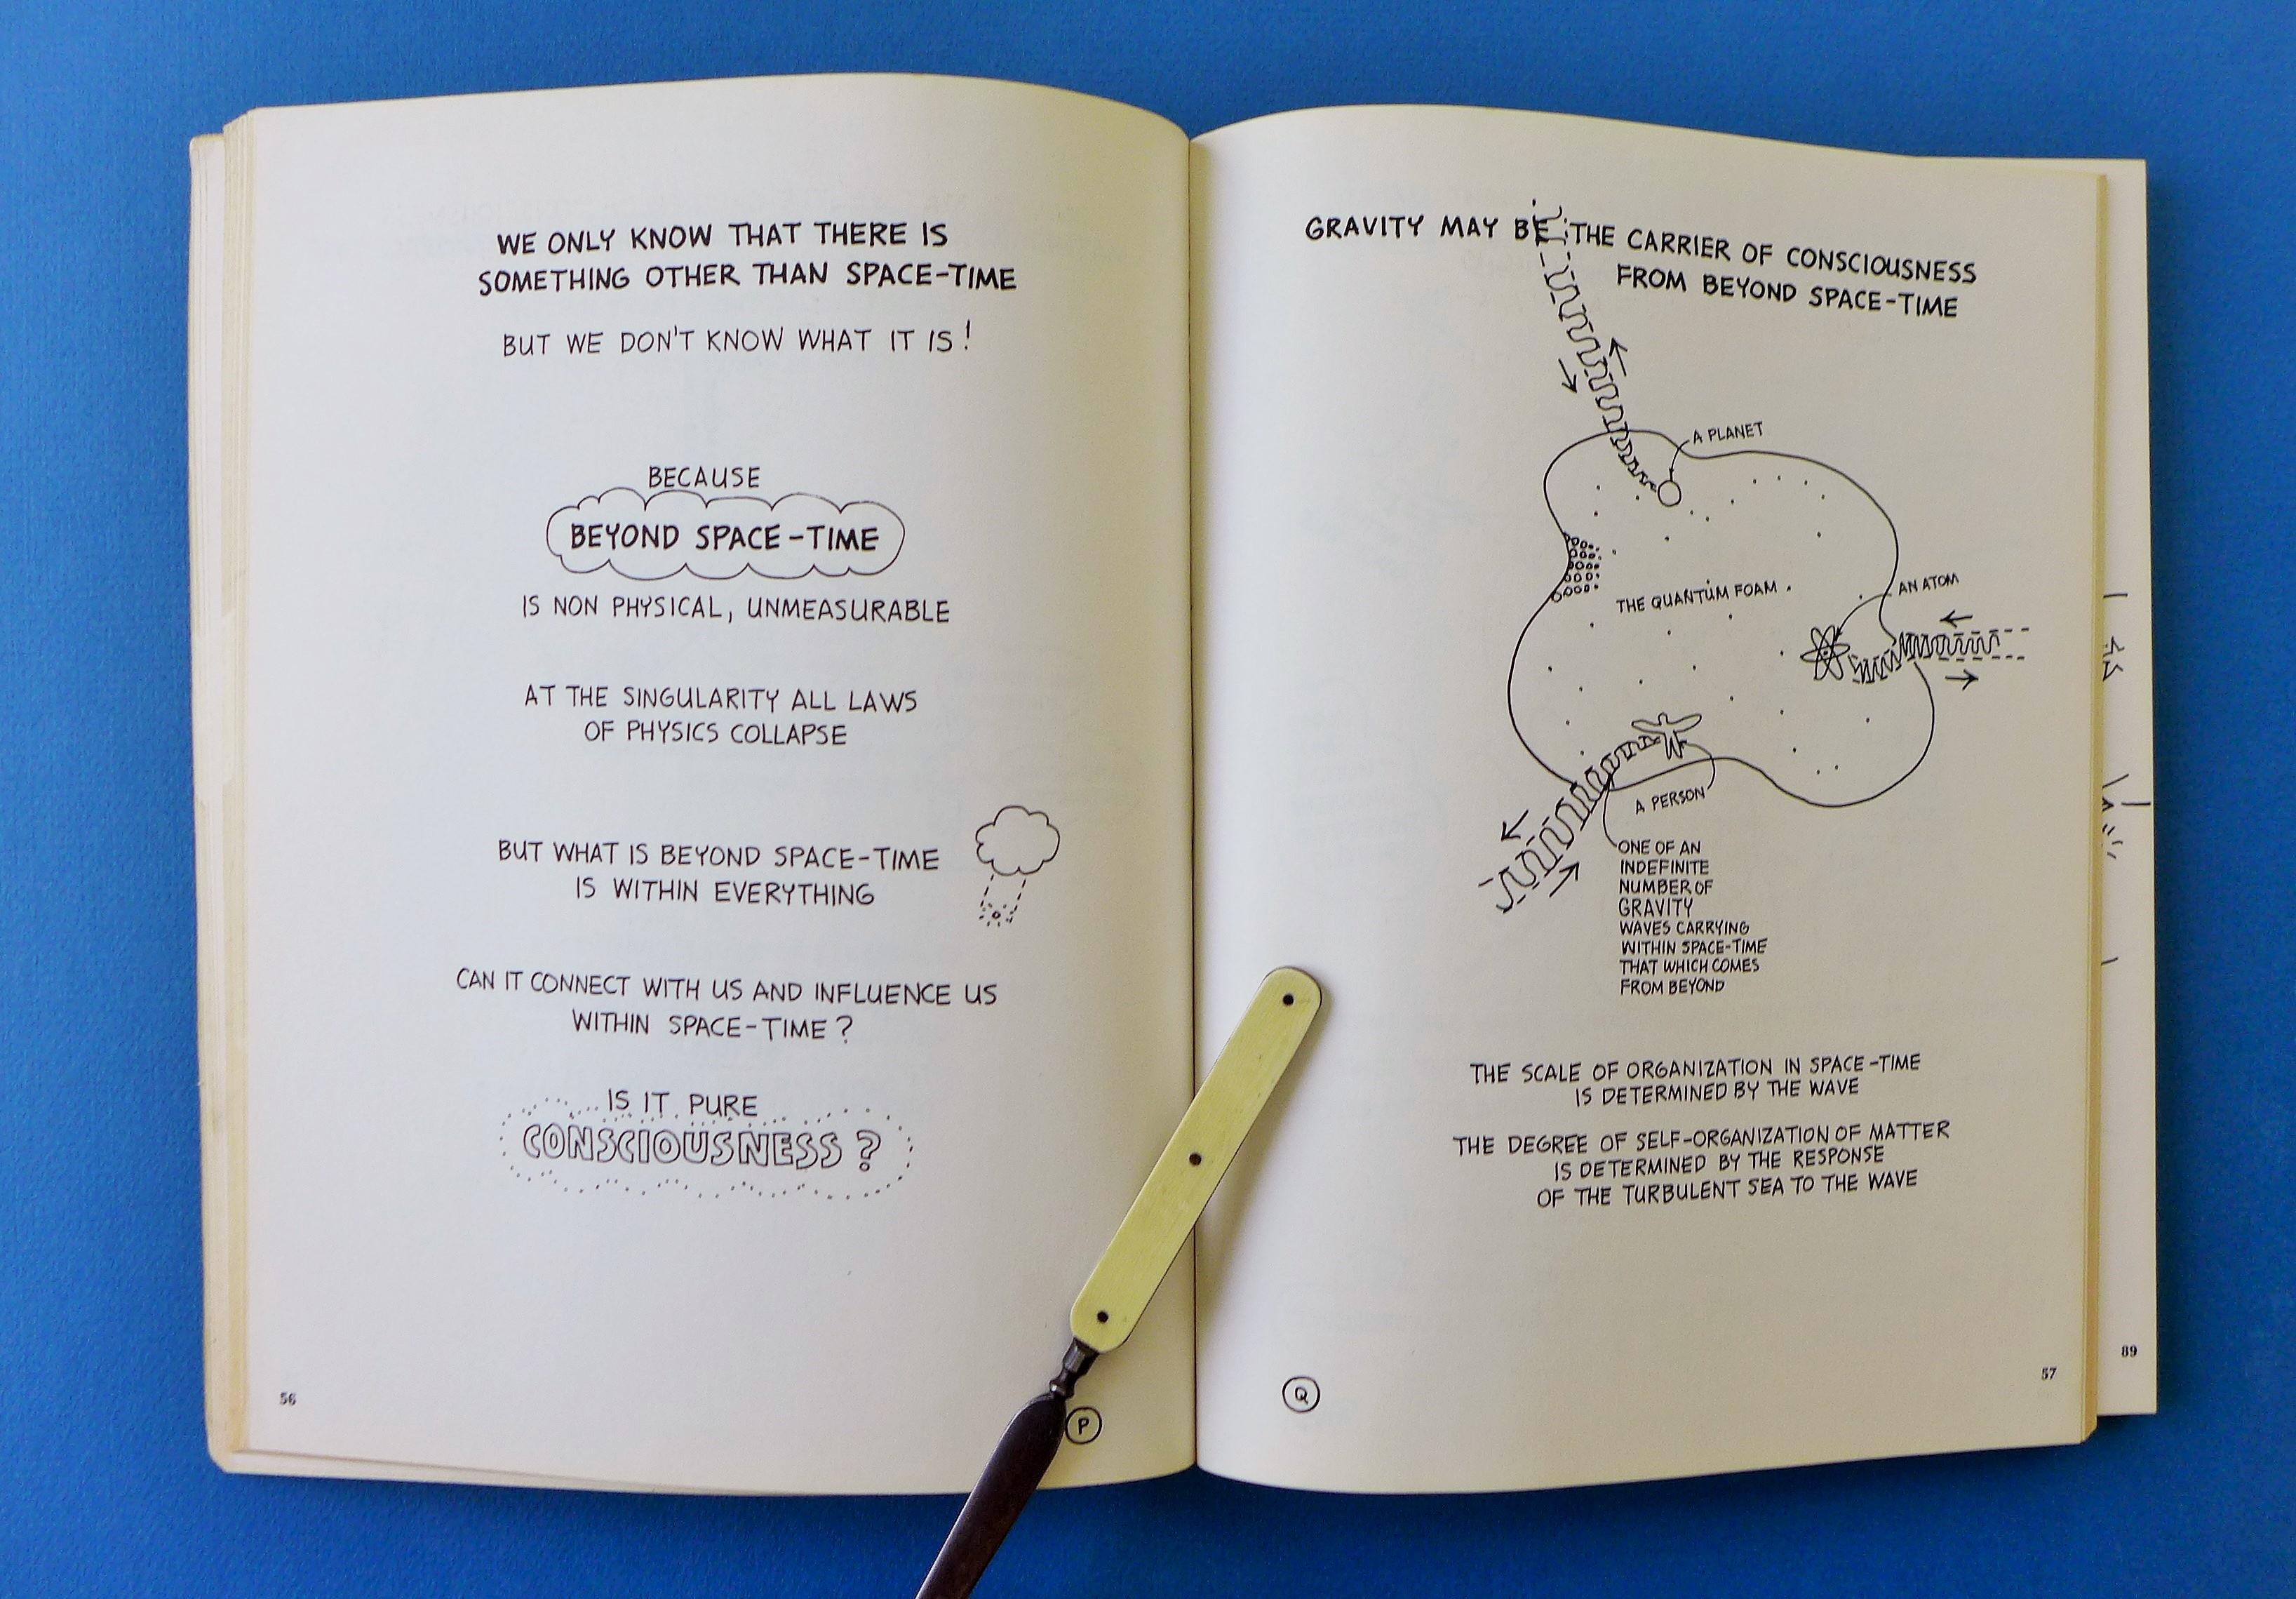 WE ONLY KNOW THAT THERE IS
SOMETHING OTHER THAN SPACE-TIME
BUT WE DON'T KNOW WHAT IT IS!
BECAUSE
BEYOND SPACE-TIME
IS NON PHYSICAL, UNMEASURABLE
AT THE SINGULARITY ALL LAWS
OF PHYSICS COLLAPSE
BUT WHAT IS BEYOND SPACE-TIME
IS WITHIN EVERYTHING
CAN IT CONNECT WITH US AND INFLUENCE US
WITHIN SPACE-TIME?
IS IT PURE
CONSCIOUSNESS?
56
P
GRAVITY MAY BE THE CARRIER OF CONSCIOUSNESS
FROM BEYOND SPACE-TIME
A PLANET
THE QUANTUM FOAM
AN ATOM
A PERSON
ONE OF AN
INDEFINITE
NUMBER OF
GRAVITY
WAVES CARRYING
WITHIN SPACE-TIME
THAT WHICH COMES
FROM BEYOND
THE SCALE OF ORGANIZATION IN SPACE-TIME
IS DETERMINED BY THE WAVE
THE DEGREE OF SELF-ORGANIZATION OF MATTER
IS DETERMINED BY THE RESPONSE
OF THE TURBULENT SEA TO THE WAVE
Q
57
89